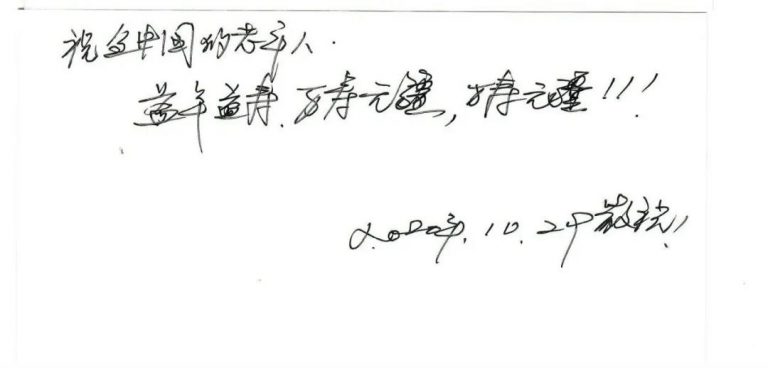 祝全中国的老年人.
益年益寿、万寿无疆, 万寿无疆!!!
2020年.10.29敬祝!